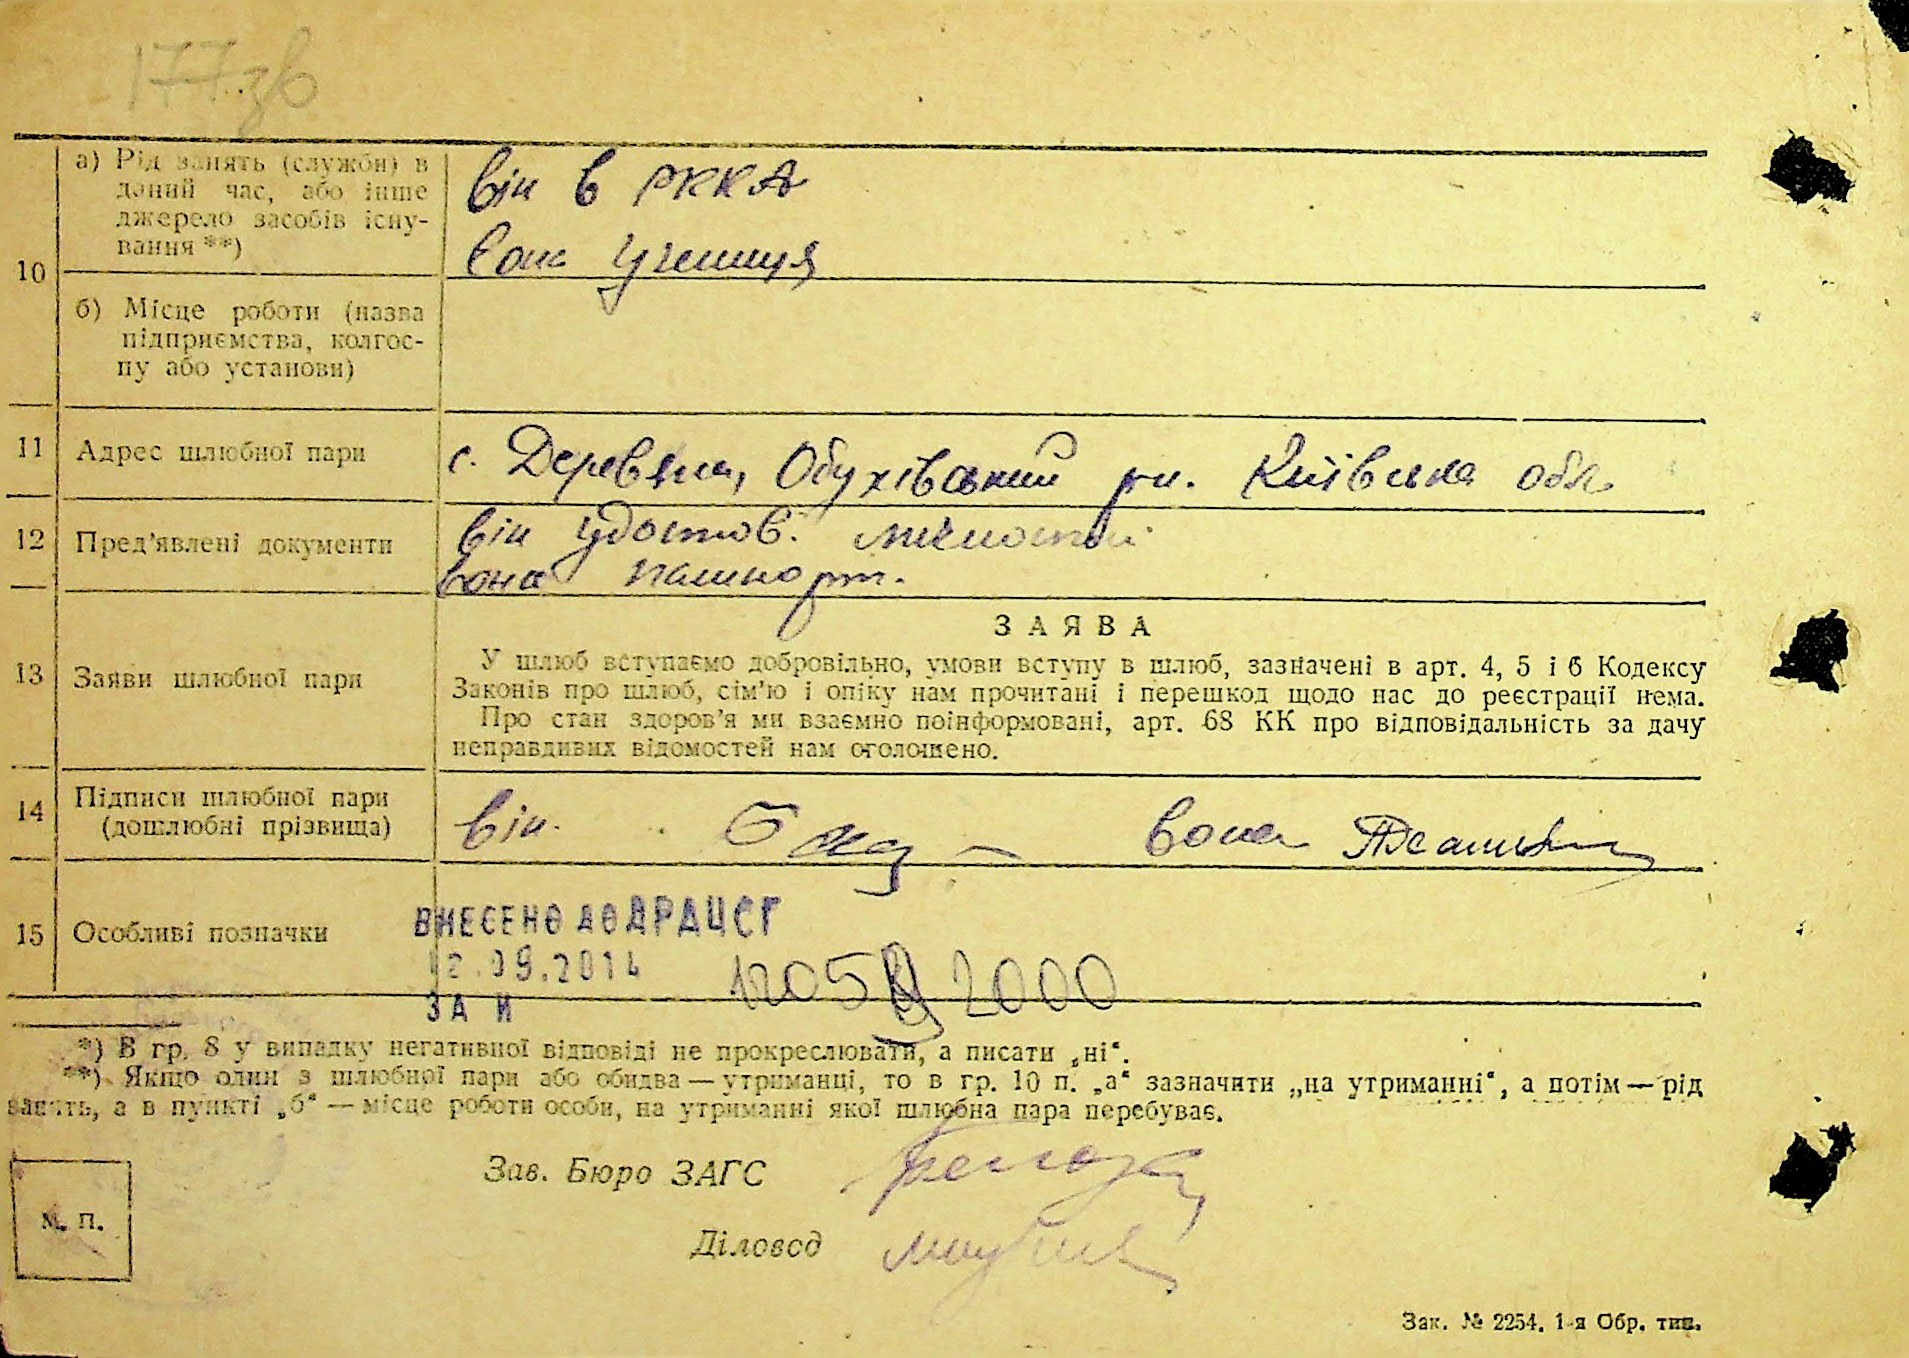 177зв
10
а) Рід занять (служби) в
даний час, або інше
джерело засобів існу-
вання **)
він в РККА
вона учениця
б) Місце роботи (назва
підприємства, колгос-
пу або установи)
11 Адрес шлюбної пари
с. Деревяна, Обухівський рн. Київська обл
12 Пред'явлені документи
він удостов. личности
вона пашпорт.
13 Заяви шлюбної пари
ЗАЯВА
У шлюб вступаємо добровільно, умови вступу в шлюб, зазначені в арт. 4, 5 і 6 Кодексу
Законів про шлюб, сім'ю і опіку нам прочитані і перешкод щодо нас до реєстрації нема.
Про стан здоров'я ми взаємно поінформовані, арт. 68 КК про відповідальність за дачу
неправдивих відомостей нам оголошено.
14 Підписи шлюбної пари
(дошлюбні прізвища)
він. вона
15 Особливі позначки
ВНЕСЕНО ДО ДРАЦСГ
12.09.2014
ЗА № 12052000
*) В гр. 8 у випадку негативної відповіді не прокреслювати, а писати „ні“.
**) Якщо один з шлюбної пари або обидва — утриманці, то в гр. 10 п. „а“ зазначити „на утриманні“, а потім — рід
занять, а в пункті „б“ — місце роботи особи, на утриманні якої шлюбна пара перебуває.
Зав. Бюро ЗАГС
Діловод
м. п.
Зак. № 2254. 1-я Обр. тип.